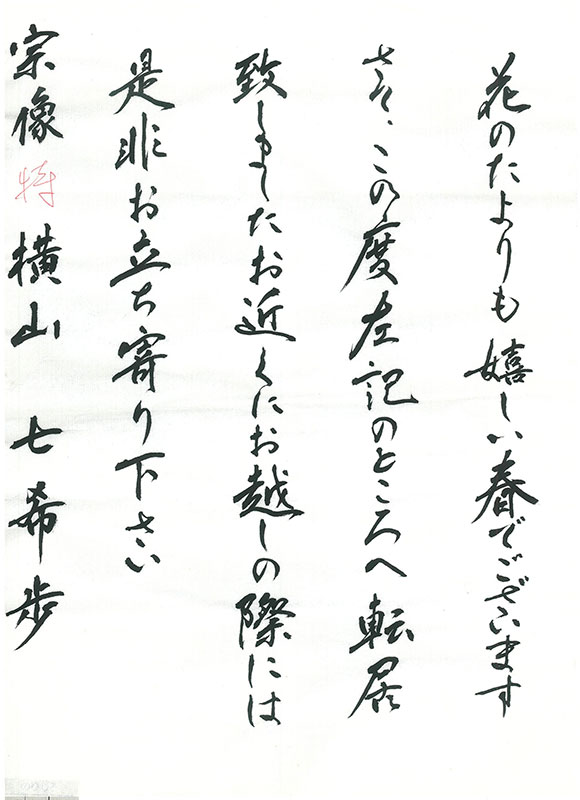 花のたよりも嬉しい春でございます
さて、この度左記のところへ転居
致しましたお近くにお越しの際には
是非お立ち寄り下さい
宗像 特 横山 七希歩